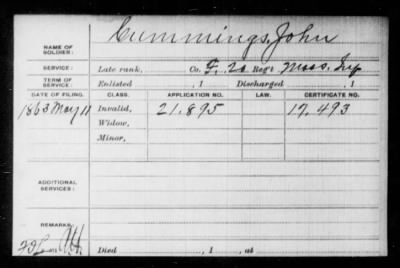 NAME OF SOLDIER: Cummings, John
SERVICE: Late rank, Co. F, 20 Reg't Mass. Inf
TERM OF SERVICE: Enlisted , 1 Discharged , 1
DATE OF FILING. CLASS. APPLICATION NO. LAW. CERTIFICATE NO.
1863 May 11 Invalid, 21.895 17.493
Widow,
Minor,
ADDITIONAL SERVICES:
REMARKS:
Died , 1 , at